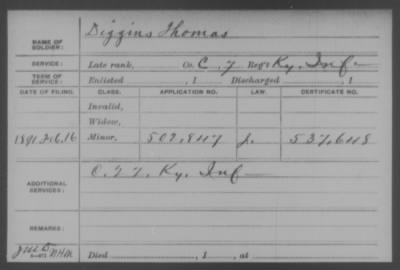 NAME OF SOLDIER: Diggins Thomas
SERVICE: Late rank, Co. C. 7 Reg't Ky. Inf
TERM OF SERVICE: Enlisted , 1 Discharged , 1
DATE OF FILING. CLASS. APPLICATION NO. LAW. CERTIFICATE NO.
Invalid,
Widow,
1891 Feb. 16 Minor, 507,847 J. 537,648
ADDITIONAL SERVICES: C. 7 7. Ky. Inf
REMARKS:
Died , 1 , at